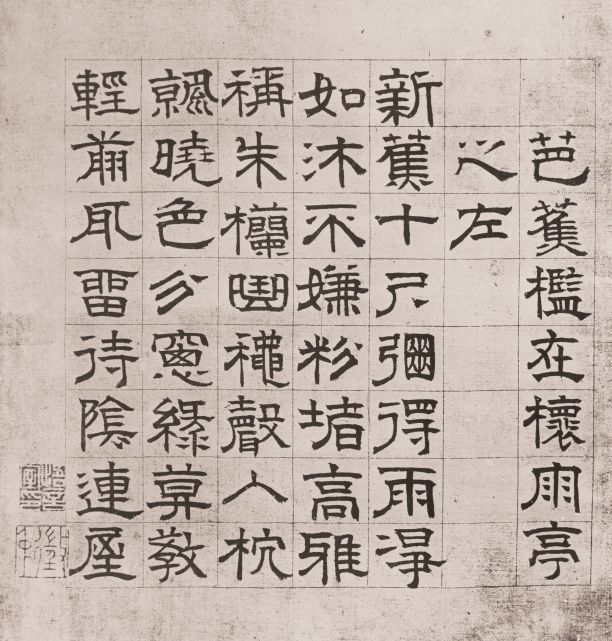 芭蕉檻在櫰雨亭
之左
新蕉十尺彊得雨淨
如沐不嫌粉堵高雅
稱朱欄曲龝聲入枕
飄曉色分窻綠莫教
輕翦取畱待陰連屋